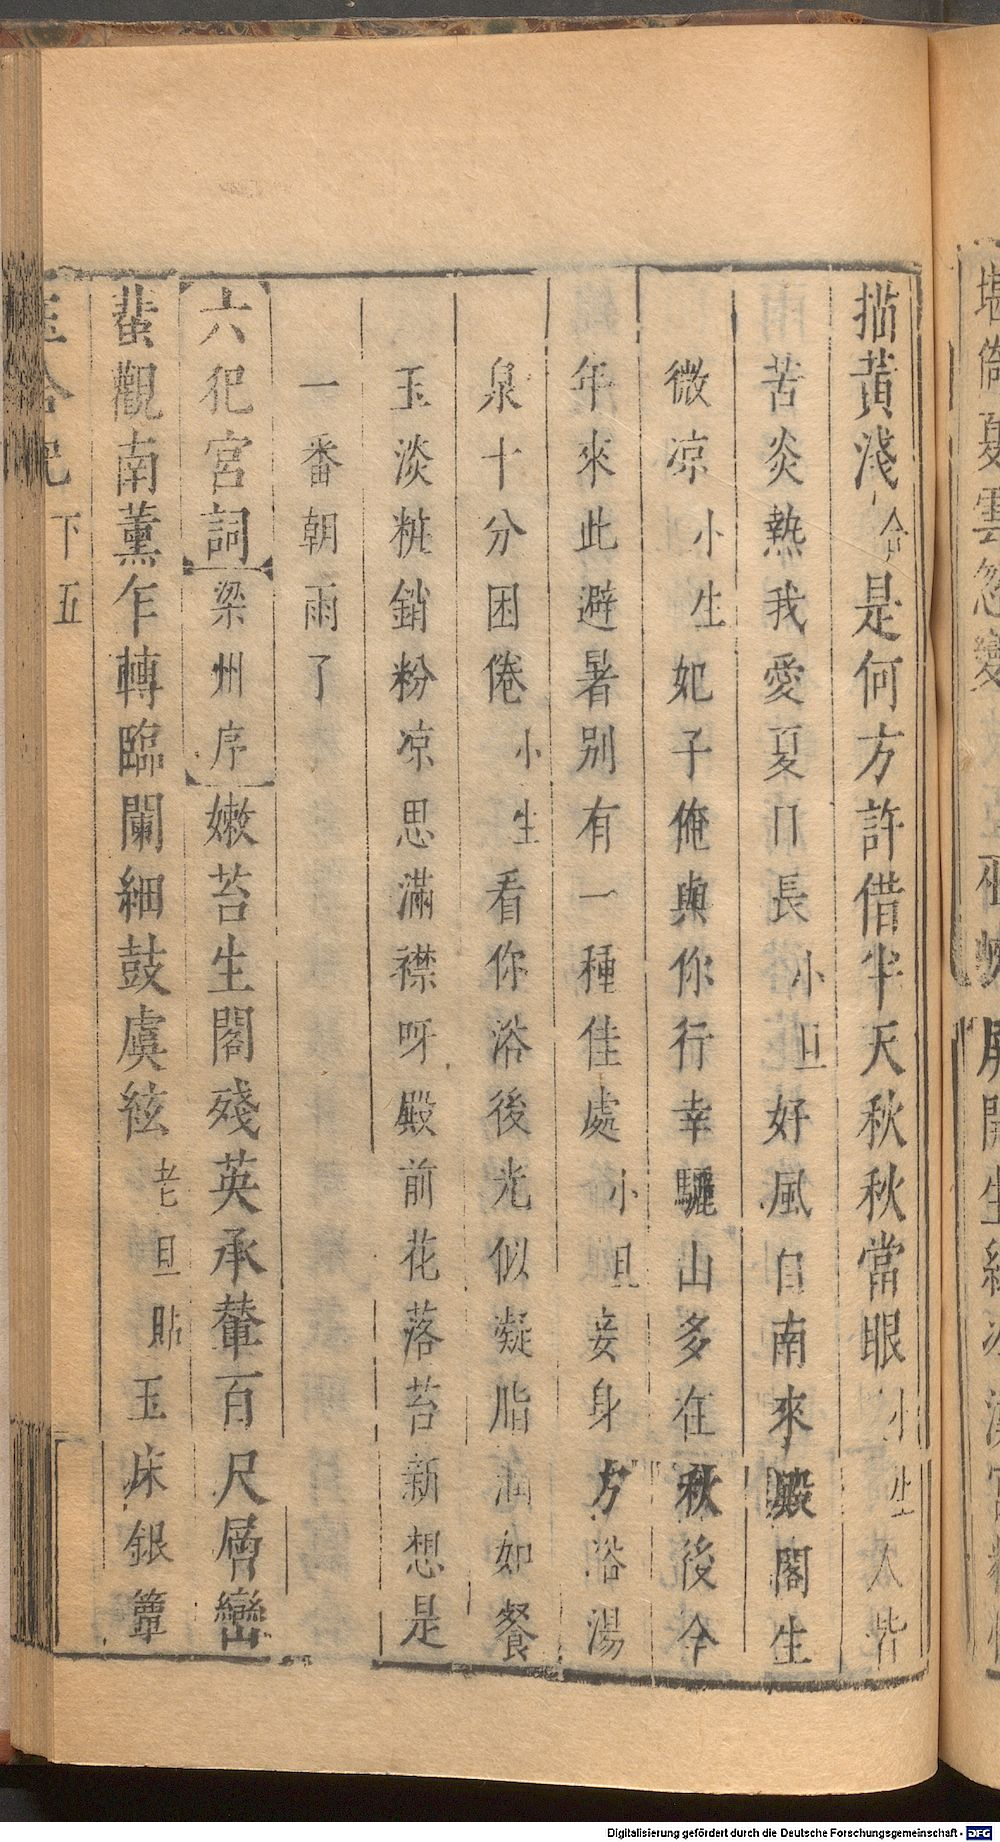 描黃淺合是何方許借半天秋秋當眼小生人皆
苦炎熱我愛夏日長小旦好風自南來殿閣生
微凉小生妃子俺與你行幸驪山多在秋後今
年來此避暑別有一種佳處小旦妾身方浴湯
泉十分困倦小生看你浴後光似凝脂潤如餐
玉淡粧銷粉凉思滿襟呀殿前花落苔新想是
一番朝雨了
六犯宮詞梁州序嫩苔生閣殘英承輦百尺層巒
蜚觀南薰乍轉臨闌細鼓虞絃老旦貼玉床銀簟
下五
Digitalisierung gefördert durch die Deutsche Forschungsgemeinschaft - DFG